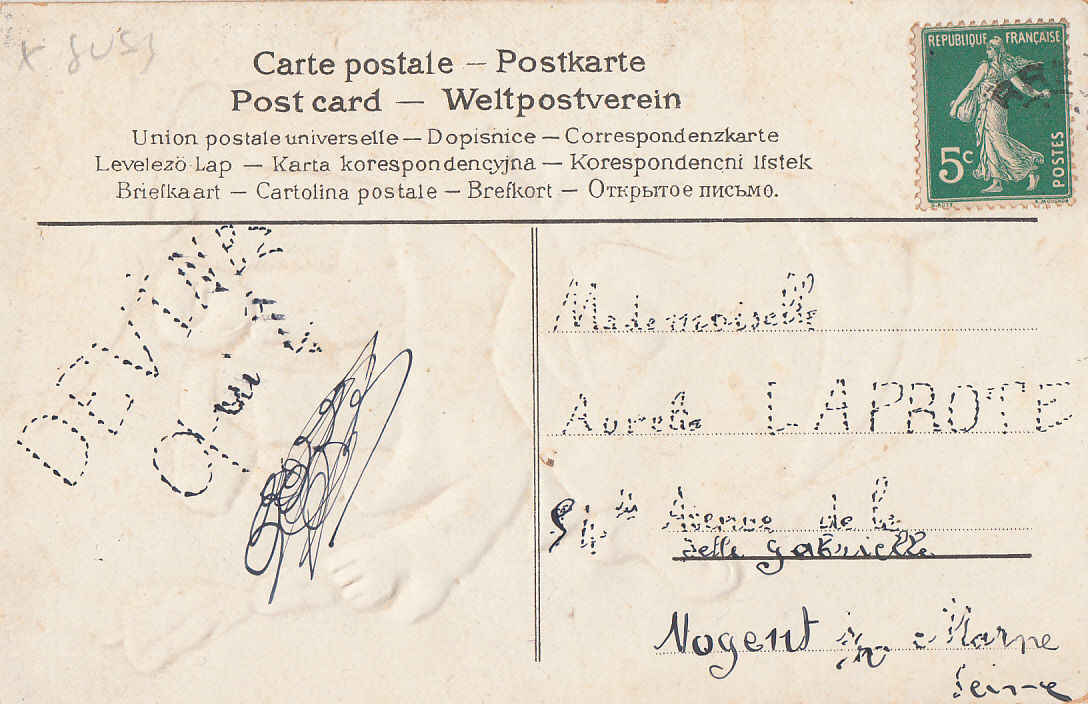 Carte postale – Postkarte
Post card — Weltpostverein
Union postale universelle — Dopisnice — Correspondenzkarte
Levelező Lap — Karta korespondencyjna — Korespondencni listek
Briefkaart — Cartolina postale — Brefkort — Открытое письмо.
REPUBLIQUE FRANÇAISE
5c
POSTES
Mademoiselle
LAPROTE
Avenue de la
Belle Gabrielle
Nogent s/ Marne
Seine